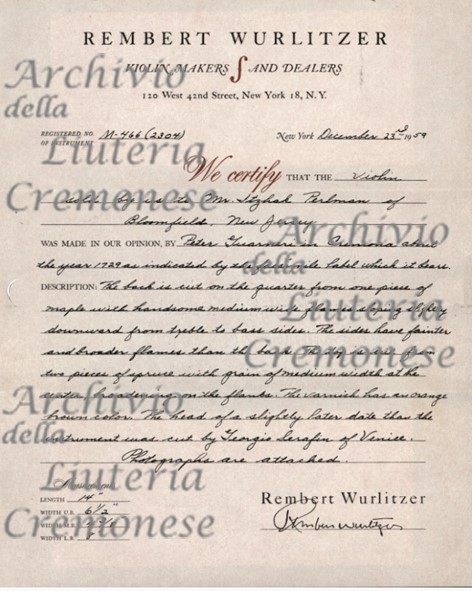 REMBERT WURLITZER
VIOLIN MAKERS AND DEALERS
120 West 42nd Street, New York 18, N.Y.
REGISTERED NO. M-466 (2304) New York December 23rd 1959
OF INSTRUMENT
We certify THAT THE Violin
sold by us to Mr. Itzhak Perlman of
Bloomfield, New Jersey.
WAS MADE IN OUR OPINION, BY Peter Guarneri in Cremona about
the year 1729 as indicated by label which it bears.
DESCRIPTION: The back is cut on the quarter from one piece of
maple with handsome medium wide flames slightly
downward from treble to bass sides. The sides have fainter
and broader flames than the back. The
two pieces of spruce with grain of medium width at the
center broadening on the flanks. The varnish has an orange
brown color. The head of a slightly later date than the
instrument was cut by Georgio Serafin of Venice.
Photographs are attached.
LENGTH 14"
WIDTH U.B. 6 1/2"
WIDTH
WIDTH L.B.
Rembert Wurlitzer
Rembert Wurlitzer
Archivio
della
Liuteria
Cremonese
Archivio
della
Liuteria
Cremonese
Archivio
della
Liuteria
Cremonese